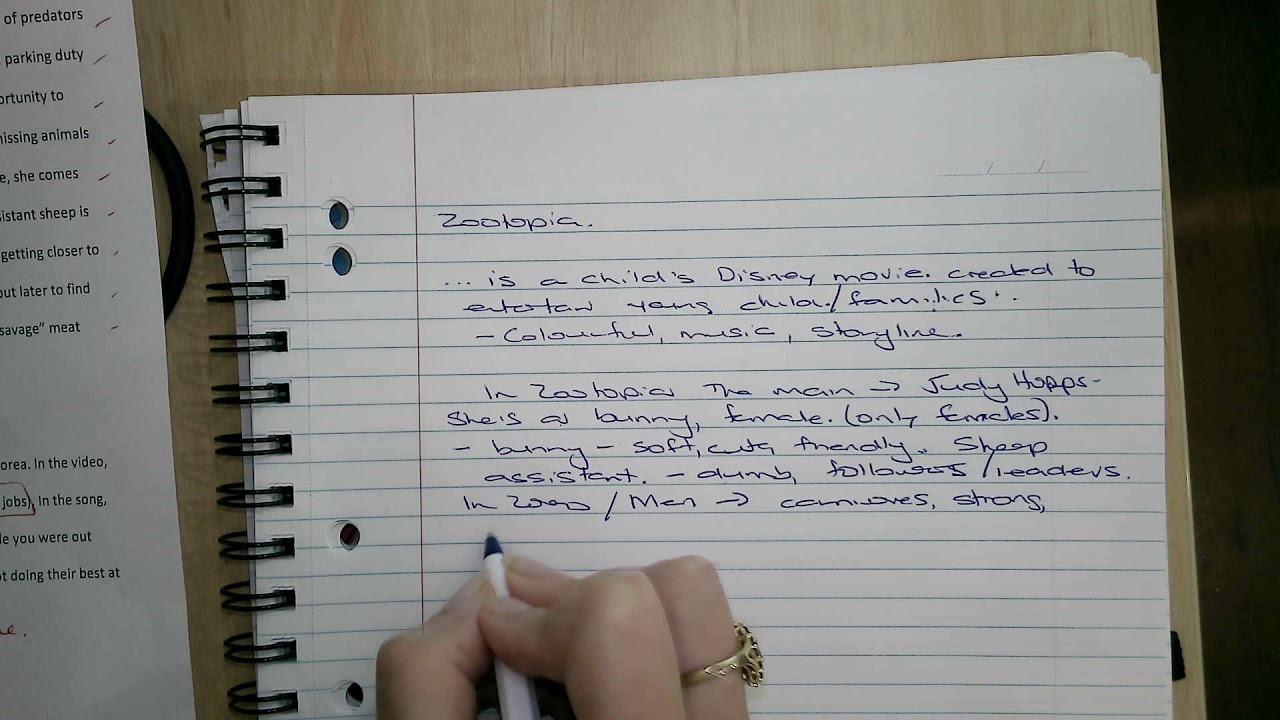 of predators
parking duty
ortunity to
issing animals
e, she comes
sistant sheep is
getting closer to
out later to find
savage" meat
orea. In the video,
jobs), In the song,
le you were out
ot doing their best at
e.
Zootopia.
... is a child's Disney movie. created to
entertain young child/families.
- Colourful, music, storyline.
In Zootopia The main → Judy Hopps-
She's a bunny, female. (only females).
- bunny - soft, cute friendly. Sheep
assistant. - dumb, followers/leaders.
In / Men → carnivores, strong,